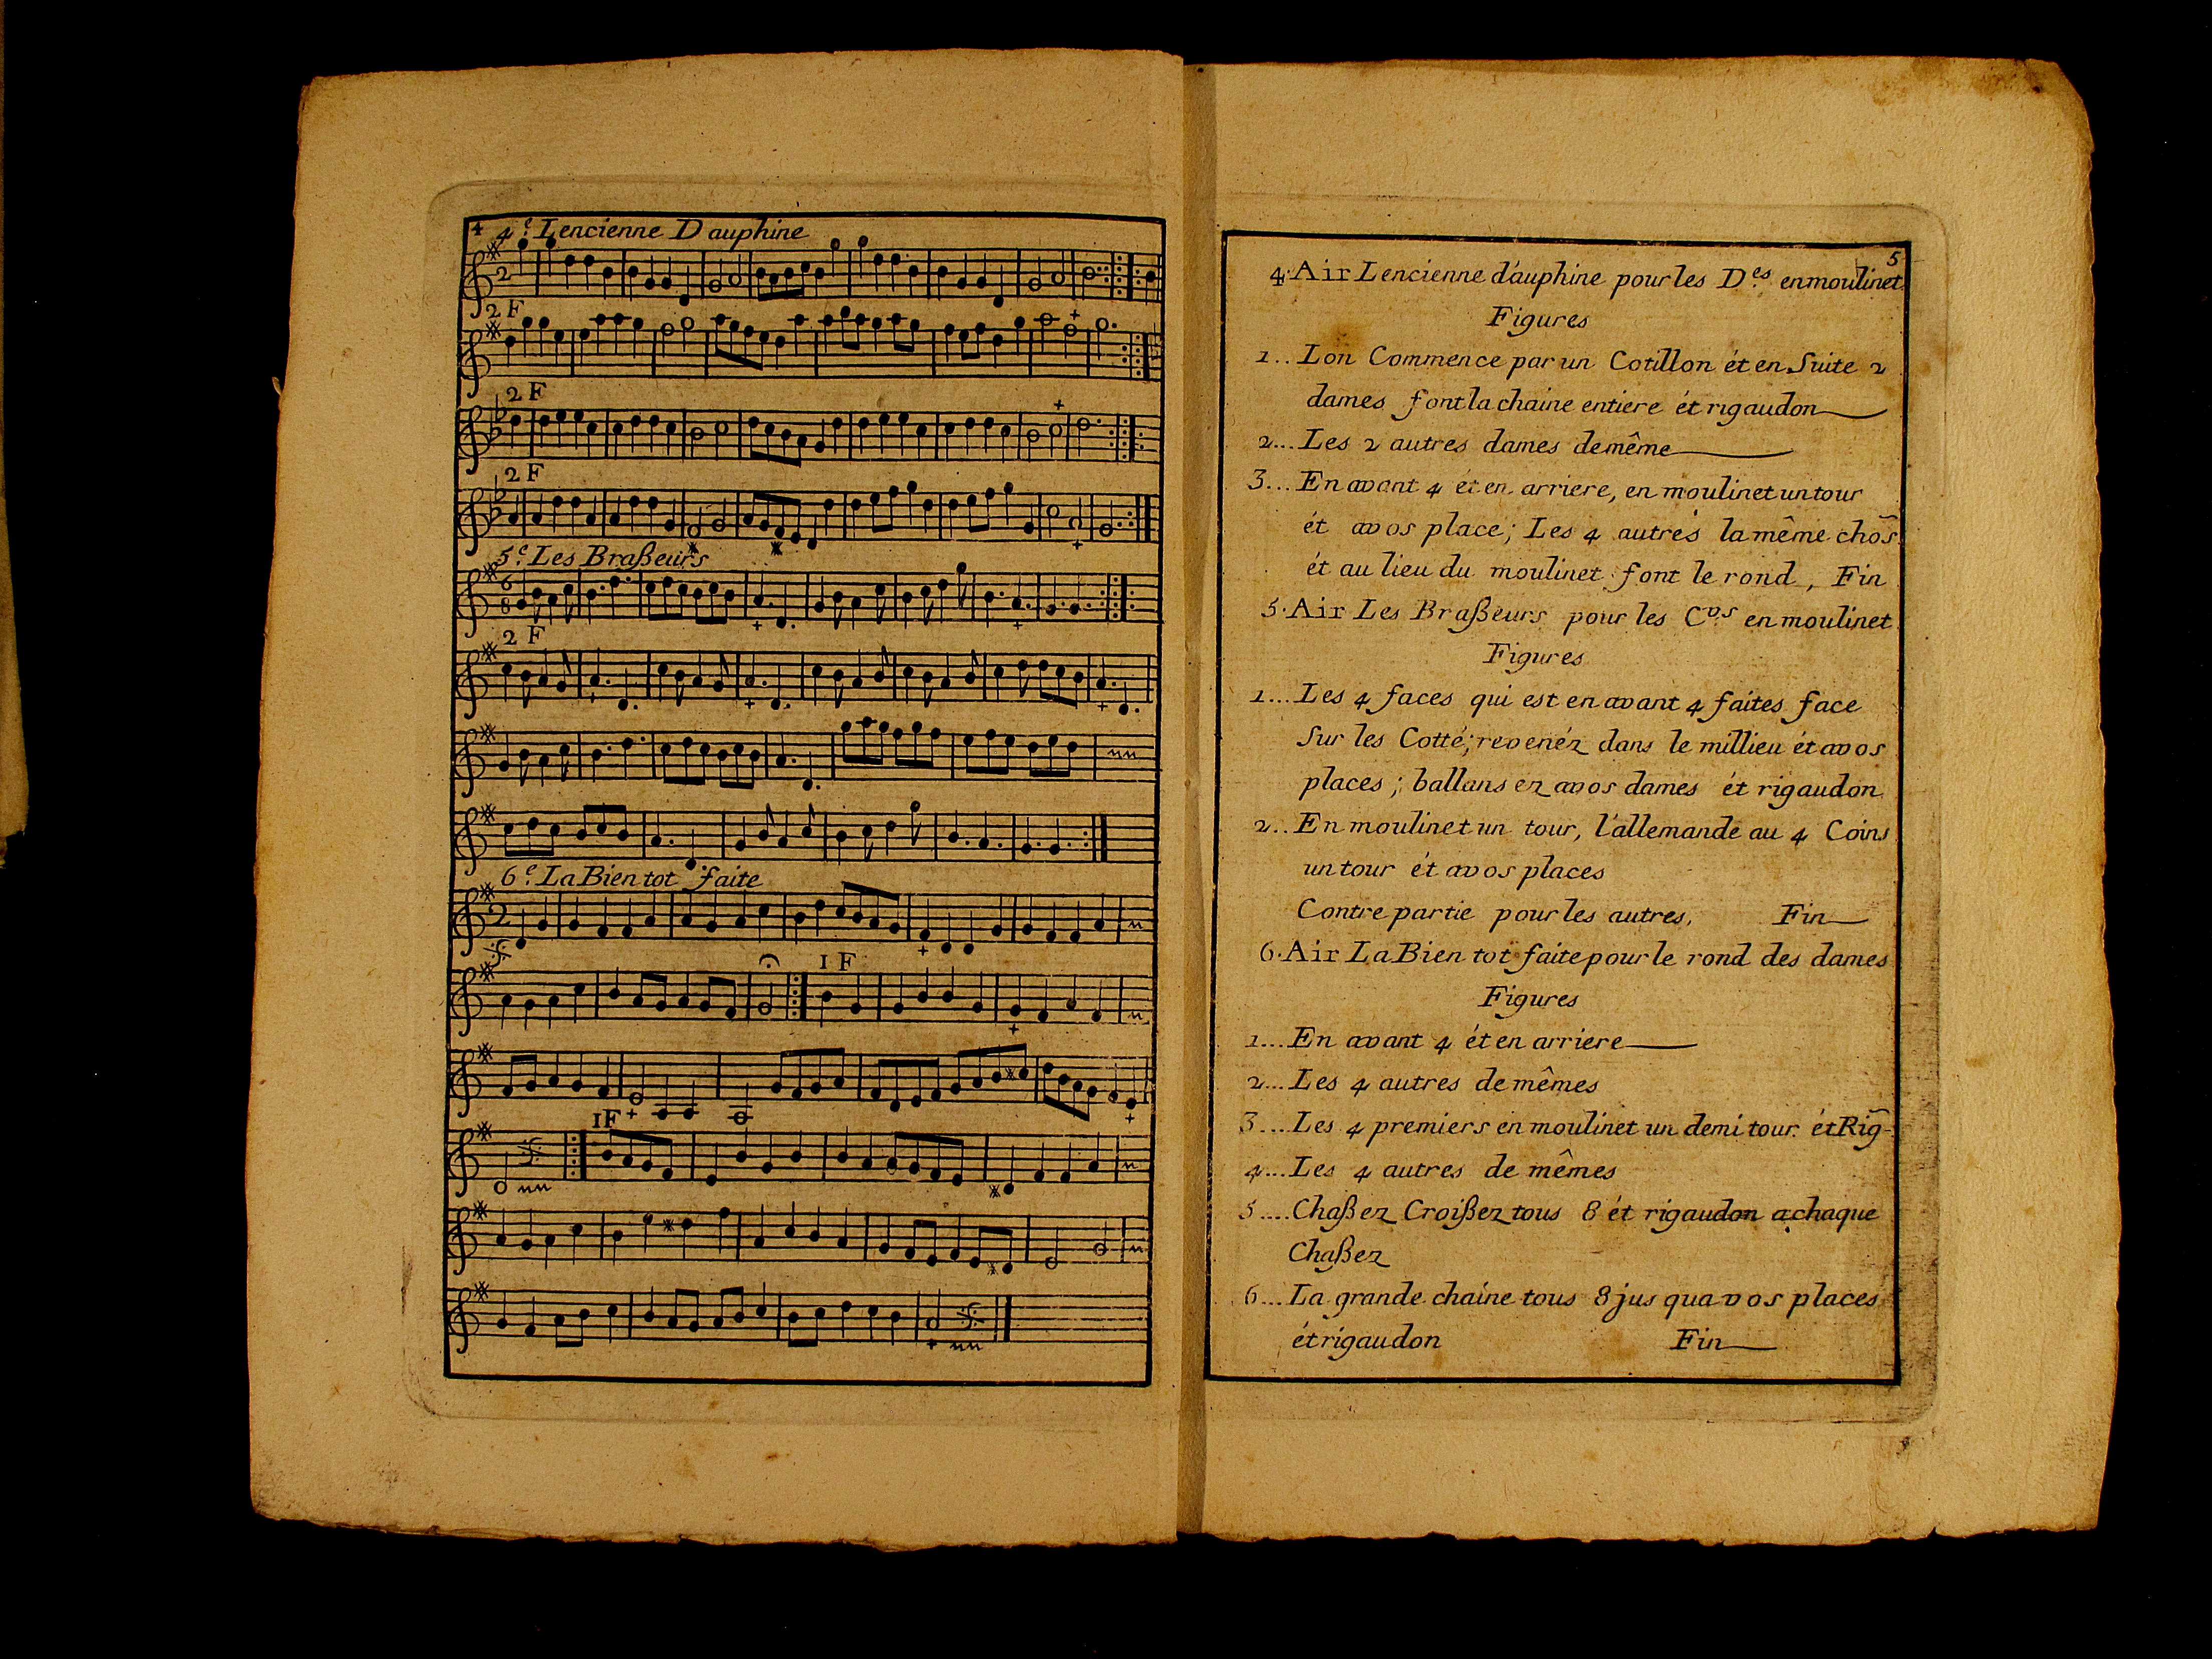 4
4.e Lencienne Dauphine
2
2 F
2 F
2 F
5.e Les Braßeurs
6
8
2 F
6.e La Bien tot faite
2
1 F
1F
5
4. Air Lencienne d'auphine pour les D.es en moulinet
Figures
1... Lon Commence par un Cotillon ét en Suite 2
dames font la chaine entiere ét rigaudon
2... Les 2 autres dames de même
3... En avant 4 ét en arriere, en moulinet un tour
ét avos place; Les 4 autrés la même chos̃
ét au lieu du moulinet font le rond, Fin
5. Air Les Braßeurs pour les C.vs en moulinet
Figures
1... Les 4 faces qui est en avant 4 faites face
Sur les Cotté; revenéz dans le millieu ét avos
places; ballans ez avos dames ét rigaudon
2.. En moulinet un tour, l'allemande au 4 Coins
un tour ét avos places
Contre partie pour les autres, Fin
6. Air La Bien tot faite pour le rond des dames
Figures
1... En avant 4 ét en arriere
2... Les 4 autres de mêmes
3.... Les 4 premiers en moulinet un demi tour ét Rig̃-
4... Les 4 autres de mêmes
5.... Chaßez Croißez tous 8 ét rigaudon a chaque
Chaßez
6... La grande chaine tous 8 jus qua vos places
ét rigaudon Fin